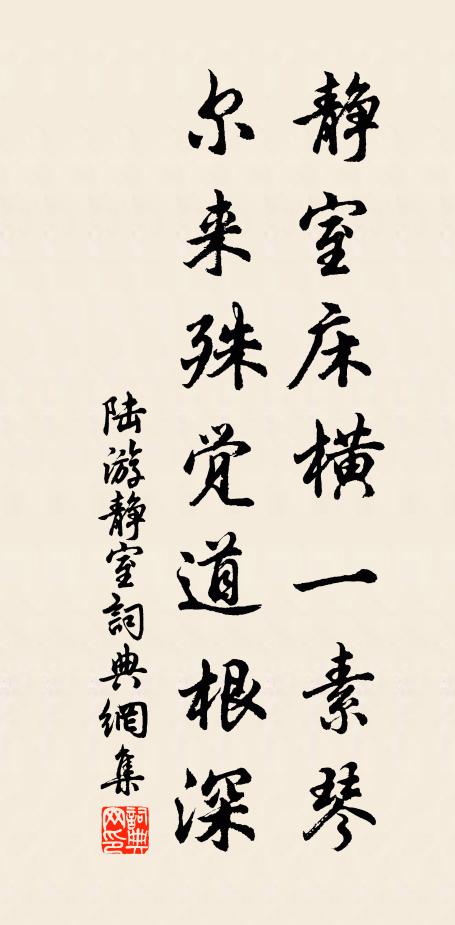 静室床横一素琴
尔来殊觉道根深
陆游静室詞典網集
詞典网印